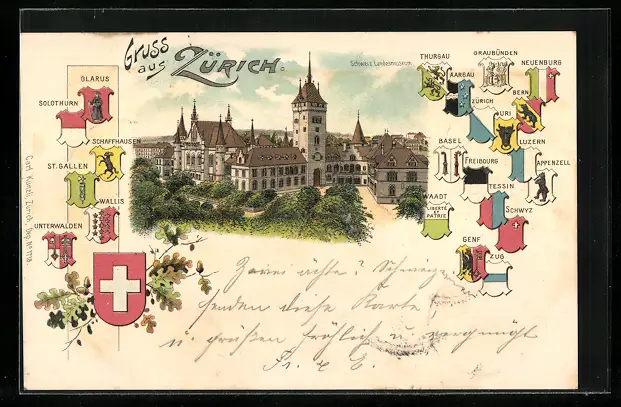 Gruss
aus
ZÜRICH.
Schweiz. Landesmuseum
GLARUS
SOLOTHURN
SCHAFFHAUSEN
ST. GALLEN
WALLIS
UNTERWALDEN
THURGAU
GRAUBÜNDEN
NEUENBURG
AARGAU
BERN
ZÜRICH
URI
LUZERN
BASEL
FREIBOURG
APPENZELL
TESSIN
WAADT
LIBERTÉ
ET
PATRIE
SCHWYZ
GENF
ZUG
Carl Künzli, Zürich Dep. No 1118.
senden diese Karte
u. grüßen fröhlich u. vergnügt
Fr. & E.